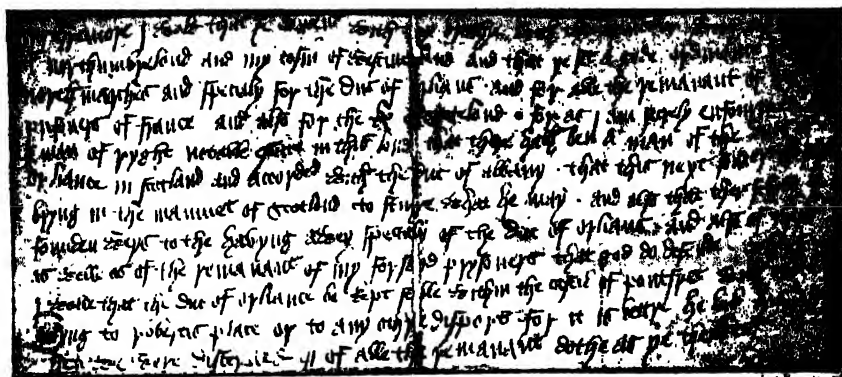 Furthermore I wold that ye comend with my brothre
Northumbrelond and my cosin of Westmerland and that ye set a gode ordinance
north marches and specialy for the Duc of Orlians and for alle the remanant of
prisoners of France and also for the K of Scotelond for as I am secrely enfourmed
a man of ryght notable estate in this lond that there hath ben a man of the
Orliance in Scotland and accorded with the Duc of Albany that this next somer
bryng in the mamuet of Scotland to sturre what he may and also that ther
founden weys to the havyng awey specialy of the Duc of Orlians and also of
as welle as of the remanant of my forsaid prysoners that god do defende
I wolle that the Duc of Orliance be kept stille withyn the castil of Pontfret
goyng to Robertis place or to any othre disport for it is bettre he lak
were disceyved of alle the remanant dothe as ye thenketh